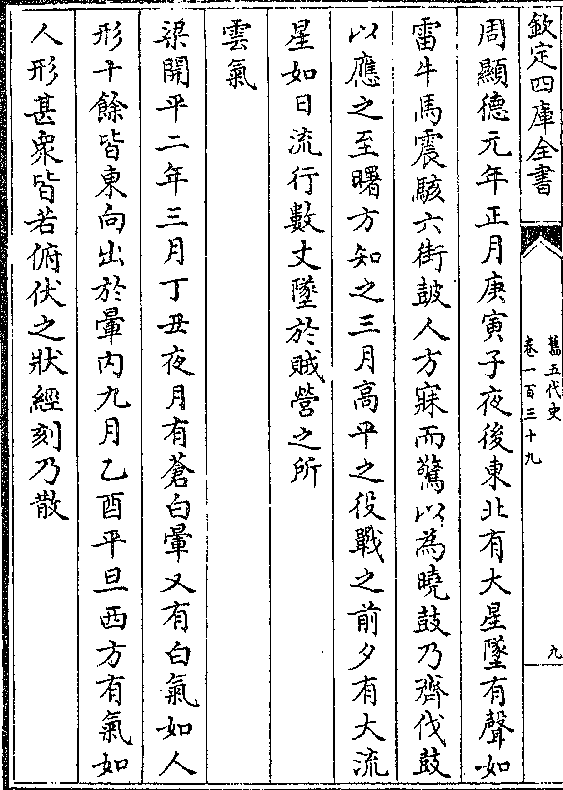 欽定四庫全書
舊五代史
卷一百三十九
九
周顯德元年正月庚寅子夜後東北有大星墜有聲如
雷牛馬震駭六街鼓人方寐而驚以為曉鼓乃齊伐鼓
以應之至曙方知之三月高平之役戰之前夕有大流
星如日流行數丈墜於賊營之所
雲氣
梁開平二年三月丁丑夜月有蒼白暈又有白氣如人
形十餘皆東向出於暈内九月乙酉平旦西方有氣如
人形甚衆皆若俯伏之狀經刻乃散